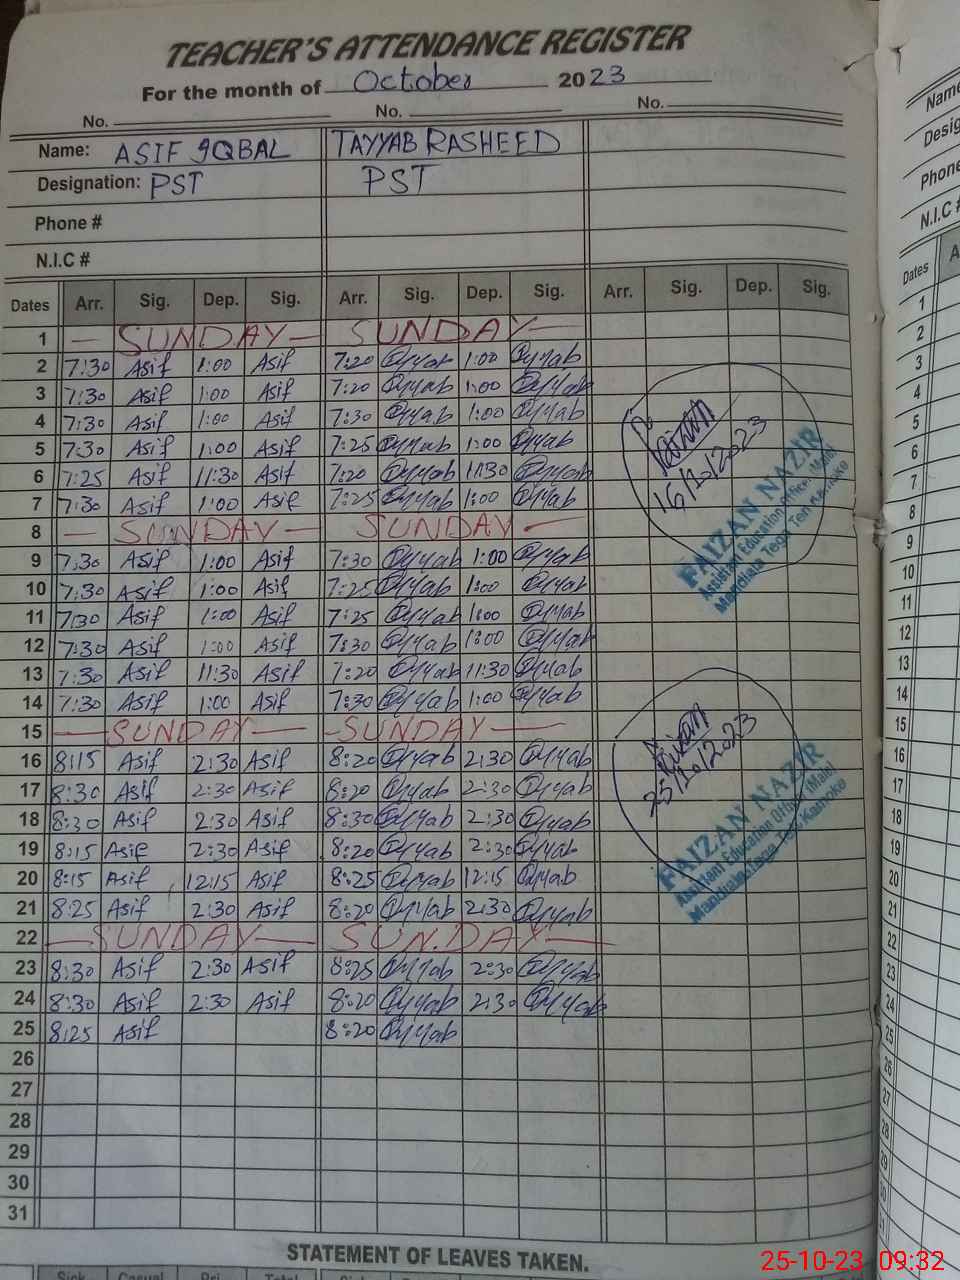 TEACHER'S ATTENDANCE REGISTER
For the month of October 2023
No. No. No.
Name: ASIF IQBAL TAYYAB RASHEED
Designation: PST PST
Phone #
N.I.C #
Dates Arr. Sig. Dep. Sig. Arr. Sig. Dep. Sig. Arr. Sig. Dep. Sig.
1 — SUNDAY — SUNDAY —
2 7:30 Asif 1:00 Asif 7:20 Tayyab 1:00 Tayyab
3 7:30 Asif 1:00 Asif 7:20 Tayyab 1:00 Tayyab
4 7:30 Asif 1:00 Asif 7:30 Tayyab 1:00 Tayyab
5 7:30 Asif 1:00 Asif 7:25 Tayyab 1:00 Tayyab
6 7:25 Asif 11:30 Asif 7:20 Tayyab 11:30 Tayyab
7 7:30 Asif 1:00 Asif 7:25 Tayyab 1:00 Tayyab
8 — SUNDAY — SUNDAY —
9 7:30 Asif 1:00 Asif 7:30 Tayyab 1:00 Tayyab
10 7:30 Asif 1:00 Asif 7:25 Tayyab 1:00 Tayyab
11 7:30 Asif 1:00 Asif 7:25 Tayyab 1:00 Tayyab
12 7:30 Asif 1:00 Asif 7:30 Tayyab 1:00 Tayyab
13 7:30 Asif 11:30 Asif 7:20 Tayyab 11:30 Tayyab
14 7:30 Asif 1:00 Asif 7:30 Tayyab 1:00 Tayyab
15 — SUNDAY — SUNDAY —
16 8:15 Asif 2:30 Asif 8:20 Tayyab 2:30 Tayyab
17 8:30 Asif 2:30 Asif 8:20 Tayyab 2:30 Tayyab
18 8:30 Asif 2:30 Asif 8:30 Tayyab 2:30 Tayyab
19 8:15 Asif 2:30 Asif 8:20 Tayyab 2:30 Tayyab
20 8:15 Asif 12:15 Asif 8:25 Tayyab 12:15 Tayyab
21 8:25 Asif 2:30 Asif 8:20 Tayyab 2:30 Tayyab
22 — SUNDAY — SUN.DAY —
23 8:30 Asif 2:30 Asif 8:25 Tayyab 2:30 Tayyab
24 8:30 Asif 2:30 Asif 8:20 Tayyab 2:30 Tayyab
25 8:25 Asif 8:20 Tayyab
26
27
28
29
30
31
Faizan
16/10/2023
FAIZAN NAZIR
Assistant Education Officer (Male)
Mandiala Tega Teh Kamoke
Faizan
25/10/2023
FAIZAN NAZIR
Assistant Education Officer (Male)
Mandiala Tega Teh Kamoke
STATEMENT OF LEAVES TAKEN.
Name
Phone
N.I.C #
Dates
1
2
3
4
5
6
7
8
9
10
11
12
13
14
15
16
17
18
19
20
21
22
23
24
25
26
27
28
29
25-10-23 09:32